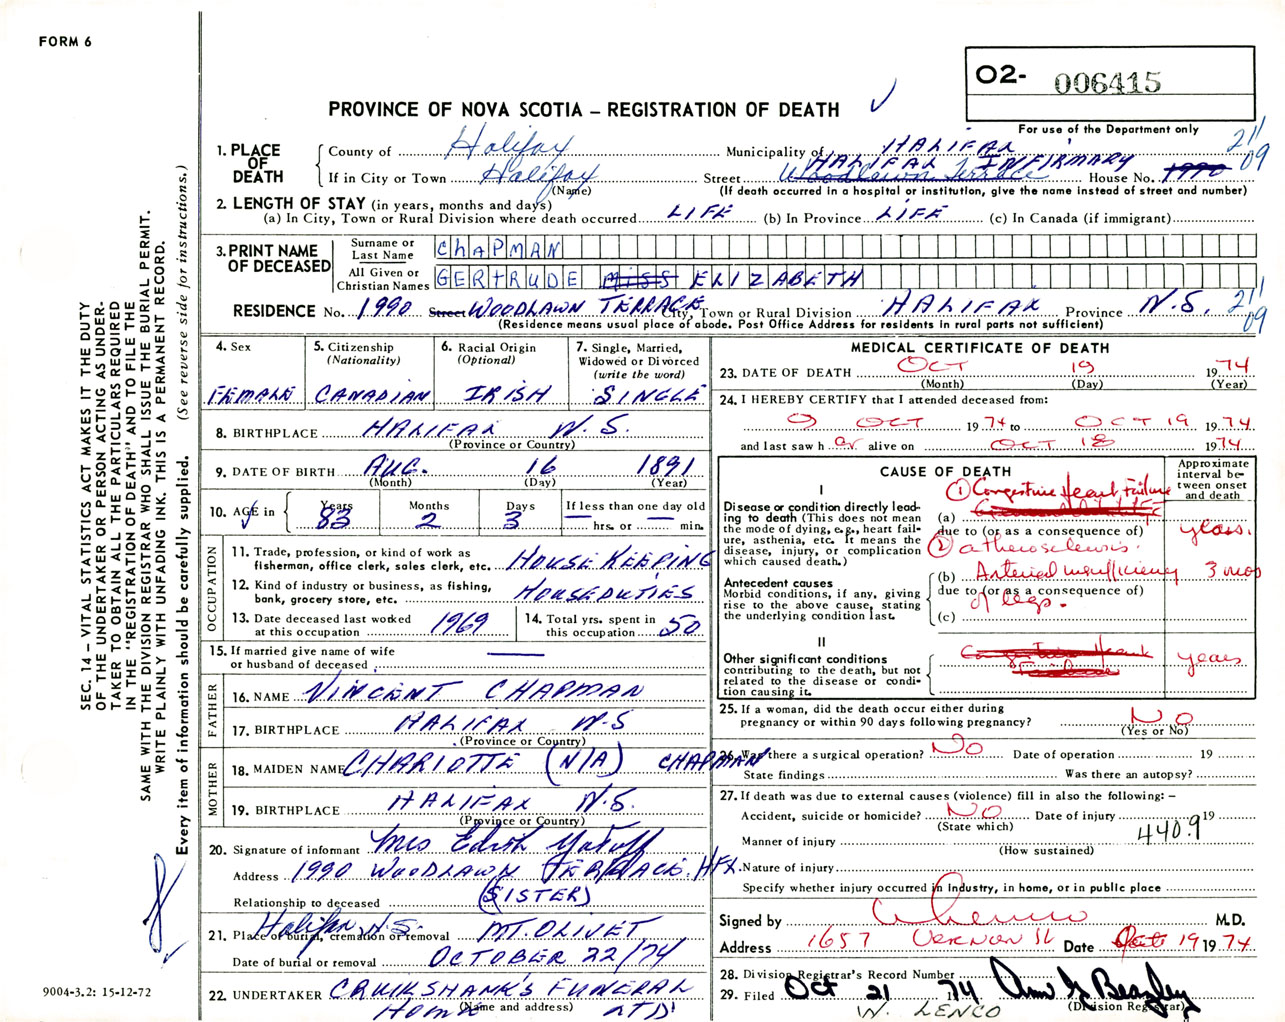 FORM 6
O2- 006415
PROVINCE OF NOVA SCOTIA – REGISTRATION OF DEATH
For use of the Department only
1. PLACE OF DEATH
County of Halifax Municipality of HALIFAX 211
HALIFAX INFIRMARY 09
If in City or Town Halifax Street Woodlawn Terrace House No. 1990
(Name) (If death occurred in a hospital or institution, give the name instead of street and number)
2. LENGTH OF STAY (in years, months and days)
(a) In City, Town or Rural Division where death occurred LIFE (b) In Province LIFE (c) In Canada (if immigrant)
3. PRINT NAME OF DECEASED
Surname or Last Name CHAPMAN
All Given or Christian Names GERTRUDE MISS ELIZABETH
RESIDENCE No. 1990 Street WOODLAWN TERRACE City, Town or Rural Division HALIFAX Province N.S. 211
09
(Residence means usual place of abode. Post Office Address for residents in rural parts not sufficient)
4. Sex FEMALE
5. Citizenship (Nationality) CANADIAN
6. Racial Origin (Optional) IRISH
7. Single, Married, Widowed or Divorced (write the word) SINGLE
8. BIRTHPLACE HALIFAX N.S.
(Province or Country)
9. DATE OF BIRTH AUG. 16 1891
(Month) (Day) (Year)
10. AGE in Years 83 Months 2 Days 3 If less than one day old — hrs. or — min.
OCCUPATION
11. Trade, profession, or kind of work as fisherman, office clerk, sales clerk, etc. HOUSE KEEPING
12. Kind of industry or business, as fishing, bank, grocery store, etc. HOUSEDUTIES
13. Date deceased last worked at this occupation 1969
14. Total yrs. spent in this occupation 50
15. If married give name of wife or husband of deceased —
FATHER
16. NAME VINCENT CHAPMAN
17. BIRTHPLACE HALIFAX N.S
(Province or Country)
MOTHER
18. MAIDEN NAME CHARLOTTE (N/A) CHAPMAN
19. BIRTHPLACE HALIFAX N.S.
(Province or Country)
20. Signature of informant Mrs Edith
Address 1990 WOODLAWN TERRACE. HFX.
Relationship to deceased (SISTER)
Halifax N.S.
21. Place of burial, cremation or removal MT. OLIVET
Date of burial or removal OCTOBER 22/74
22. UNDERTAKER CRUIKSHANK'S FUNERAL
HOME LTD
(Name and address)
MEDICAL CERTIFICATE OF DEATH
23. DATE OF DEATH OCT 19 1974
(Month) (Day) (Year)
24. I HEREBY CERTIFY that I attended deceased from:
OCT 1974 to OCT 19 1974
and last saw h er alive on OCT 18 1974
CAUSE OF DEATH
Approximate interval between onset and death
I
Disease or condition directly leading to death (This does not mean the mode of dying, e.g., heart failure, asthenia, etc. It means the disease, injury, or complication which caused death.)
① Congestive Heart Failure
(a)
due to (or as a consequence of) years.
② atherosclerosis.
Antecedent causes
Morbid conditions, if any, giving rise to the above cause, stating the underlying condition last.
(b) Arterial insufficiency 3 mos
due to (or as a consequence of)
of legs.
(c)
II
Other significant conditions contributing to the death, but not related to the disease or condition causing it.
Congestive Heart Failure years
25. If a woman, did the death occur either during pregnancy or within 90 days following pregnancy? NO
(Yes or No)
26. Was there a surgical operation? NO Date of operation 19
State findings Was there an autopsy?
27. If death was due to external causes (violence) fill in also the following: –
Accident, suicide or homicide? NO Date of injury 19
(State which)
Manner of injury 440.9
(How sustained)
Nature of injury
Specify whether injury occurred in Industry, in home, or in public place
Signed by M.D.
Address 1657 VERNON St Date Oct 19 1974
28. Division Registrar's Record Number
29. Filed Oct 21 1974 Ann G Beazley
(Division Registrar)
W. LENCO
SEC. 14 – VITAL STATISTICS ACT MAKES IT THE DUTY
OF THE UNDERTAKER OR PERSON ACTING AS UNDER-
TAKER TO OBTAIN ALL THE PARTICULARS REQUIRED
IN THE "REGISTRATION OF DEATH" AND TO FILE THE
SAME WITH THE DIVISION REGISTRAR WHO SHALL ISSUE THE BURIAL PERMIT.
WRITE PLAINLY WITH UNFADING INK. THIS IS A PERMANENT RECORD.
Every item of information should be carefully supplied. (See reverse side for instructions.)
9004-3.2: 15-12-72